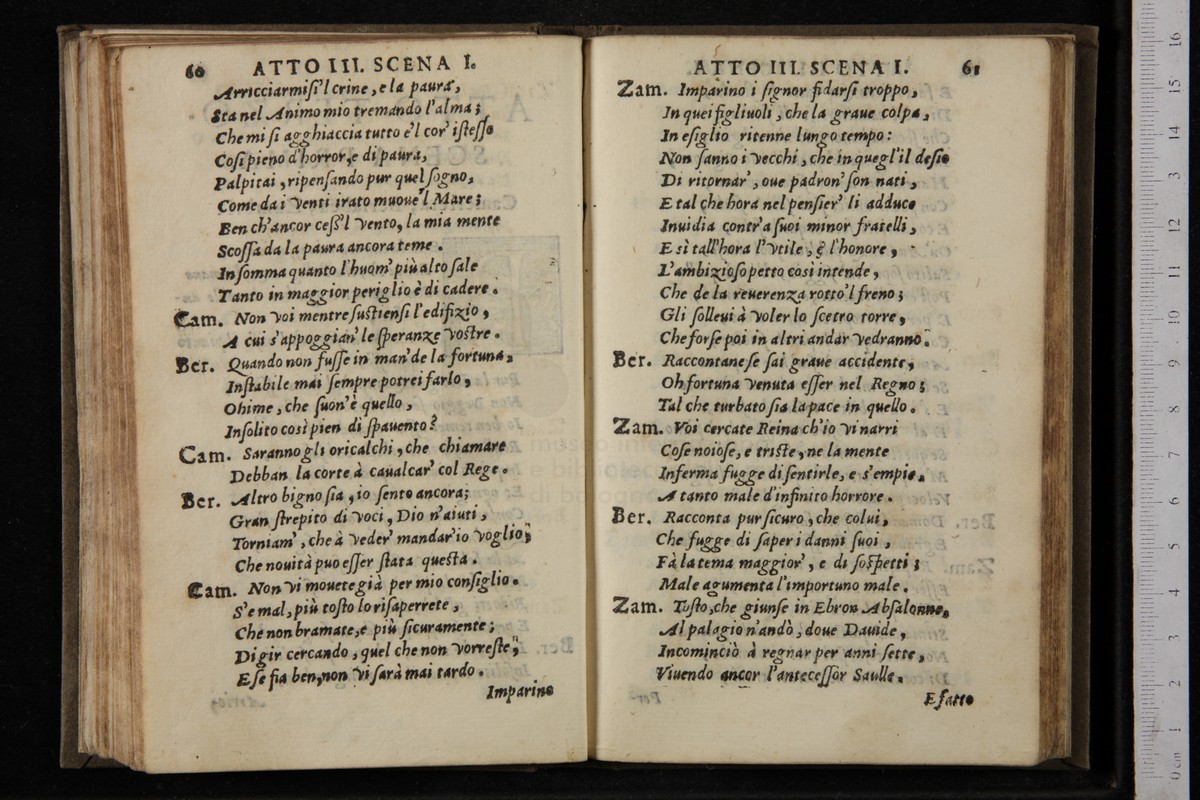 60 ATTO III. SCENA I.
Arricciarmiſi'l crine, e la paura,
Sta nel Animo mio tremando l'alma;
Che mi ſi agghiaccia tutto e'l cor' iſteſſo
Coſi pieno d'horror, e di paura,
Palpitai, ripenſando pur quel ſogno,
Come da i Venti irato muoue'l Mare;
Ben ch'ancor ceſſ'l Vento, la mia mente
Scoſſa da la paura ancora teme.
In ſomma quanto l'huom' più alto ſale
Tanto in maggior periglio è di cadere.
Cam. Non Voi mentre ſuſtienſi l'edifizio,
A cui s'appoggian' le ſperanze Voſtre.
Ber. Quando non fuſſe in man' de la fortuna,
Inſtabile mai ſempre potrei farlo,
Ohime, che ſuon'è quello,
Inſolito così pien di ſpauento?
Cam. Saranno gli oricalchi, che chiamare
Debban la corte à caualcar' col Rege.
Ber. Altro bigno ſia, io ſento ancora;
Gran ſtrepito di voci, Dio n'aiuti,
Torniam', che à Veder' mandar' io Voglio,
Che nouità puo eſſer ſtata queſta.
Cam. Non Vi mouete già per mio conſiglio.
S'e mal, più toſto lo riſaperrete,
Che non bramate, e più ſicuramente;
Di gir cercando, quel che non Vorreſte,
E ſe fia ben, non Vi ſarà mai tardo.
Imparino
ATTO III. SCENA I. 61
Zam. Imparino i ſignor fidarſi troppo,
In quei figliuoli, che la graue colpa,
In eſiglio ritenne lungo tempo:
Non ſanno i Vecchi, che in quegl'il deſio
Di ritornar', oue padron' ſon nati,
E tal che hora nel penſier' li adduce
Inuidia contr'a ſuoi minor fratelli,
E sì tall'hora l'Vtile, e l'honore,
L'ambizioſo petto così intende,
Che de la reuerenza rotto'l freno;
Gli ſolleui à Voler lo ſcetro torre,
Che forſe poi in altri andar Vedranno.
Ber. Raccontaneſe ſai graue accidente,
Oh fortuna Venuta eſſer nel Regno;
Tal che turbato ſia la pace in quello.
Zam. Voi cercate Reina ch'io Vi narri
Coſe noioſe, e triſte, ne la mente
Inferma fugge di ſentirle, e s'empie,
A tanto male d'infinito horrore.
Ber. Racconta pur ſicuro, che colui,
Che fugge di ſaper i danni ſuoi,
Fà la tema maggior', e di ſoſpetti;
Male agumenta l'importuno male.
Zam. Toſto, che giunſe in Ebron Abſalonne,
Al palagio n'andò, doue Dauide,
Incominciò à regnar per anni ſette,
Viuendo ancor l'anteceſſor Saulle.
E fatto